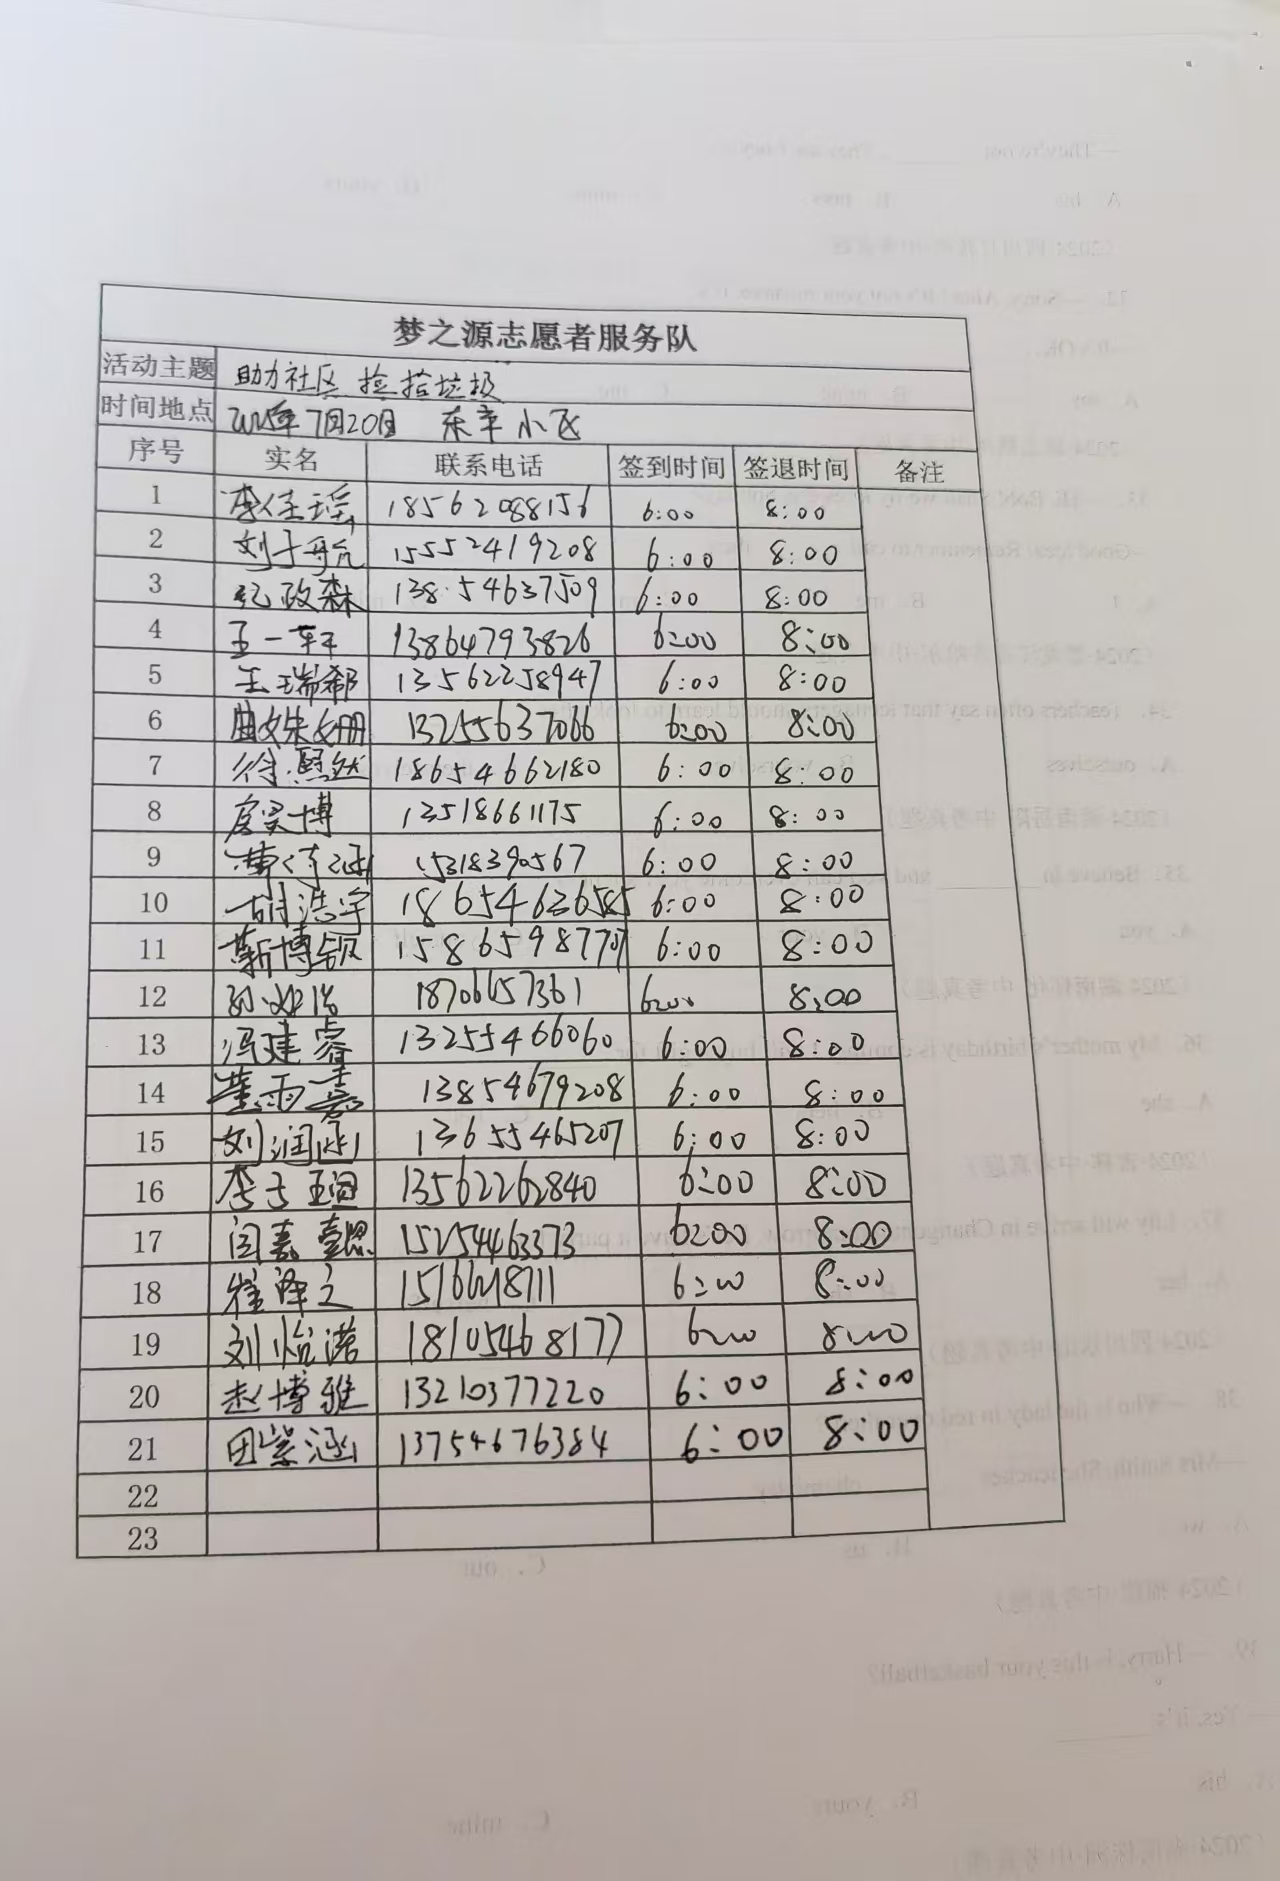 梦之源志愿者服务队
活动主题 助力社区 捡拾垃圾
时间地点 2025年7月20日 东辛小区
序号 实名 联系电话 签到时间 签退时间 备注
1 李佳瑶 18562088156 6:00 8:00
2 刘子航 15552419208 6:00 8:00
3 纪政森 13854637509 6:00 8:00
4 王一轩 13864793826 6:00 8:00
5 王瑞郗 13562258947 6:00 8:00
6 曲姝册 13255637066 6:00 8:00
7 徐熙然 18654662180 6:00 8:00
8 房昊博 13518661175 6:00 8:00
9 15318390567 6:00 8:00
10 胡浩宇 18654636585 6:00 8:00
11 靳博钗 15865987707 6:00 8:00
12 18706657361 6:00 8:00
13 冯建睿 13255466060 6:00 8:00
14 董雨嘉 13854679208 6:00 8:00
15 刘润涵 13655465207 6:00 8:00
16 李子 13562262840 6:00 8:00
17 闫嘉 15254463373 6:00 8:00
18 崔泽之 6:00 8:00
19 刘怡诺 18105468177 6:00 8:00
20 赵博雅 13210377220 6:00 8:00
21 田紫涵 13754676384 6:00 8:00
22
23